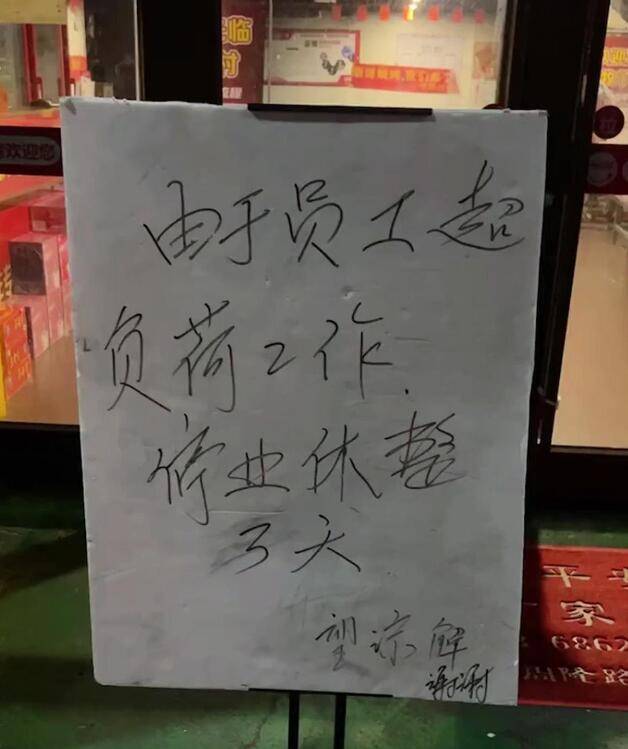 由于员工超
负荷工作.
停业休整
3天
望谅解
谢谢
欢迎您
平安
家
686